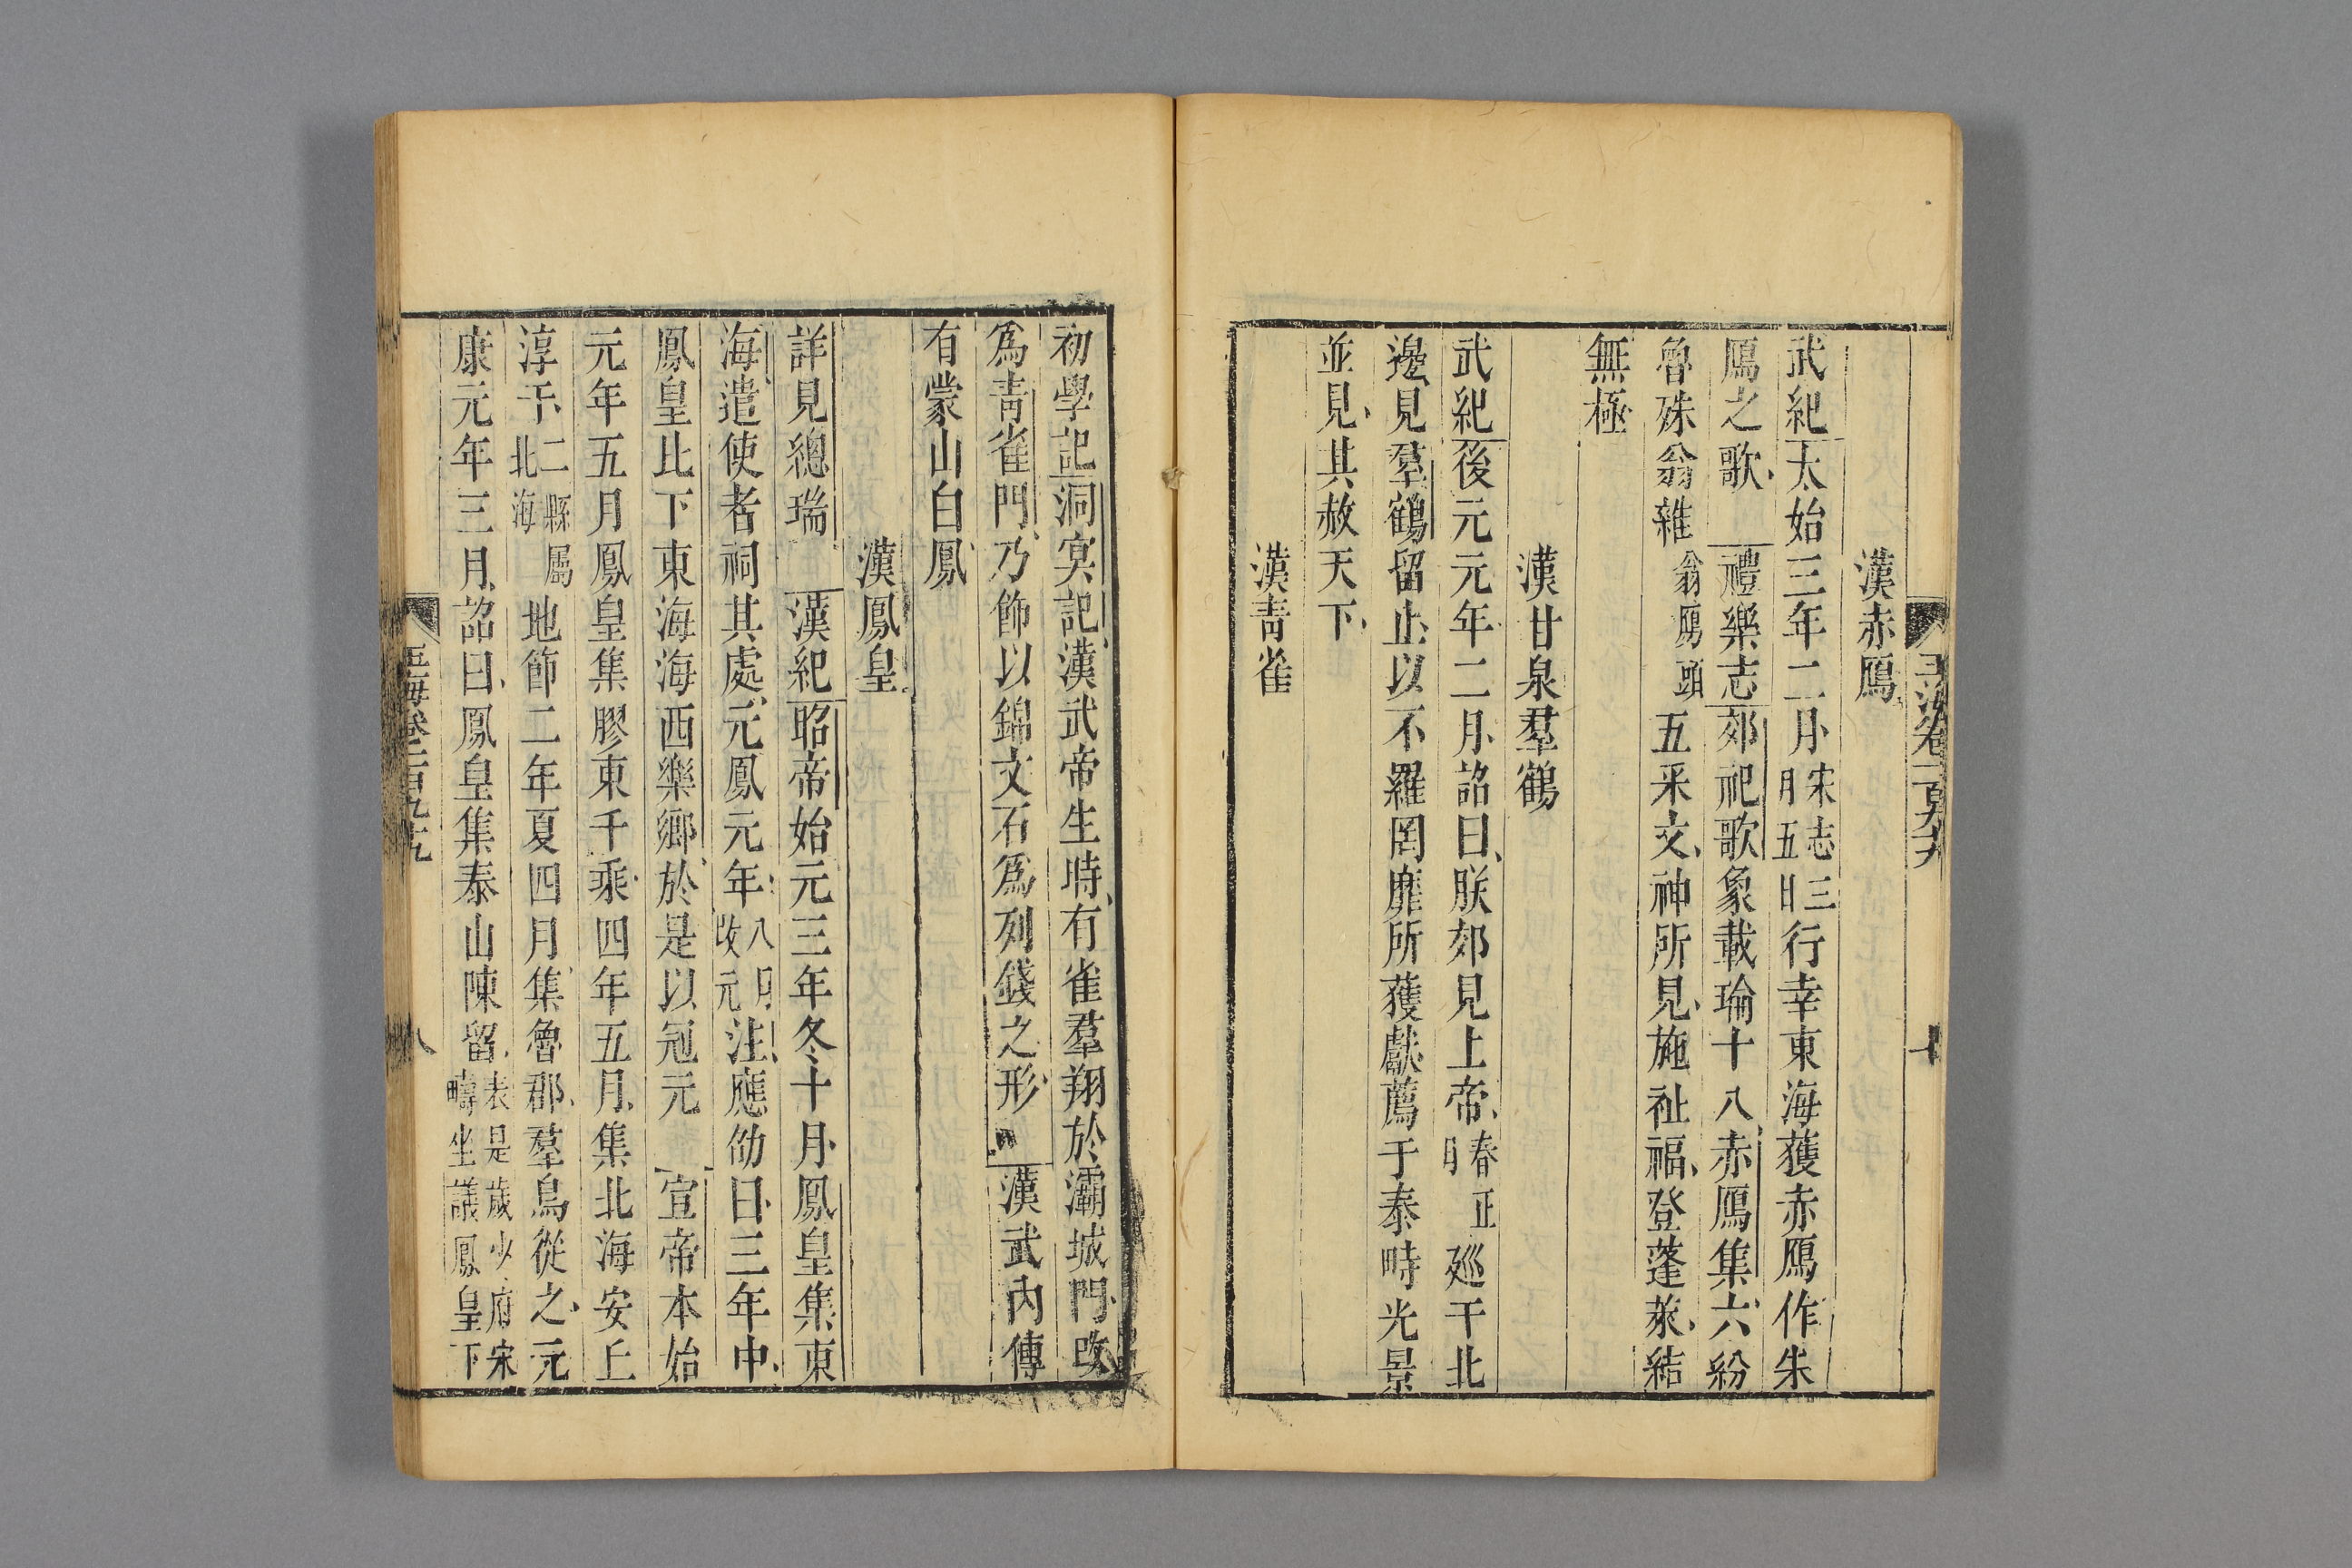 漢赤鴈
武紀太始三年二月宋志三月五日行幸東海獲赤鴈作朱
鴈之歌禮樂志郊祀歌象載瑜十八赤鴈集六紛
魯殊翁雜翁鴈頭五采文神所見施祉福登蓬萊結
無極
漢甘泉羣鶴
武紀後元元年二月詔曰朕郊見上帝春正月廵于北
邊見羣鶴留止以不羅罔靡所獲獻薦于泰畤光景
並見其赦天下
漢青雀
初學記洞冥記漢武帝生時有雀羣翔於灞城門改
爲青雀門乃飾以錦文石爲列錢之形漢武內傳
有蒙山白鳳
漢鳳皇
詳見總瑞漢紀昭帝始元三年冬十月鳳皇集東
海遣使者祠其處元鳳元年八月改元注應劭曰三年中
鳳皇比下東海海西樂鄉於是以冠元宣帝本始
元年五月鳳皇集膠東千乘四年五月集北海安丘
淳于二縣屬北海地節二年夏四月集魯郡羣鳥從之元
康元年三月詔曰鳳皇集泰山陳留表是歲少府宋疇坐議鳳皇下
玉海卷一百九十九
八